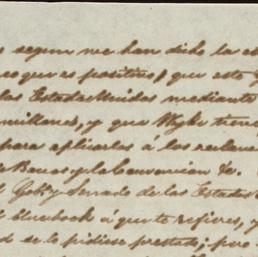 s segun me han dicho la es
co que es positivo) que este
las Estados Unidos mediante
millones, y que Wyke tiene
para aplicarlos á los reclam
de Bonos y la Convencion &c.
l Gob.º y Senado de los Estados
á que te refieres, y
d se lo pidiese prestado; pero